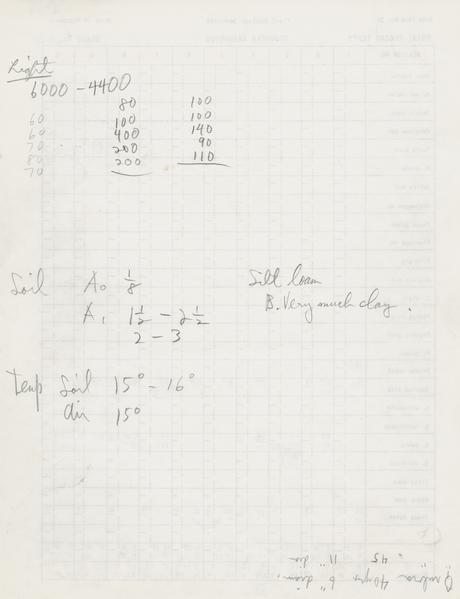 Light
6000 - 4400
80 100
60 100 100
60 400 140
70 200 90
80 200 110
70
Soil A₀ 1/8 Silt loam
A₁ 1 1/2 - 2 1/2 B. Very much clay.
2 - 3
Temp Soil 15° - 16°
air 15°
Q. rubra 40 yrs 6" diam.
" 45 11" dia